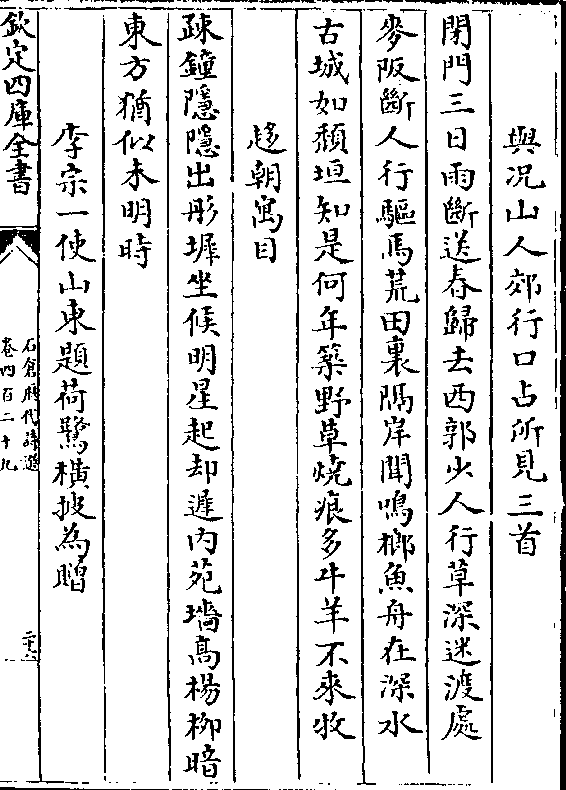 與况山人郊行口占所見三首
閉門三日雨斷送春歸去西郭少人行草深迷渡處
麥阪斷人行驅馬荒田裏隔岸聞鳴榔魚舟在深水
古城如頹垣知是何年築野草燒痕多牛羊不來牧
趍朝寓目
疎鐘隱隱出彤墀坐候明星起却遲内苑墻高楊柳暗
東方猶似未明時
李宗一使山東題荷鷺横披為贈
欽定四庫全書
石倉歴代詩選
卷四百二十九
二十六